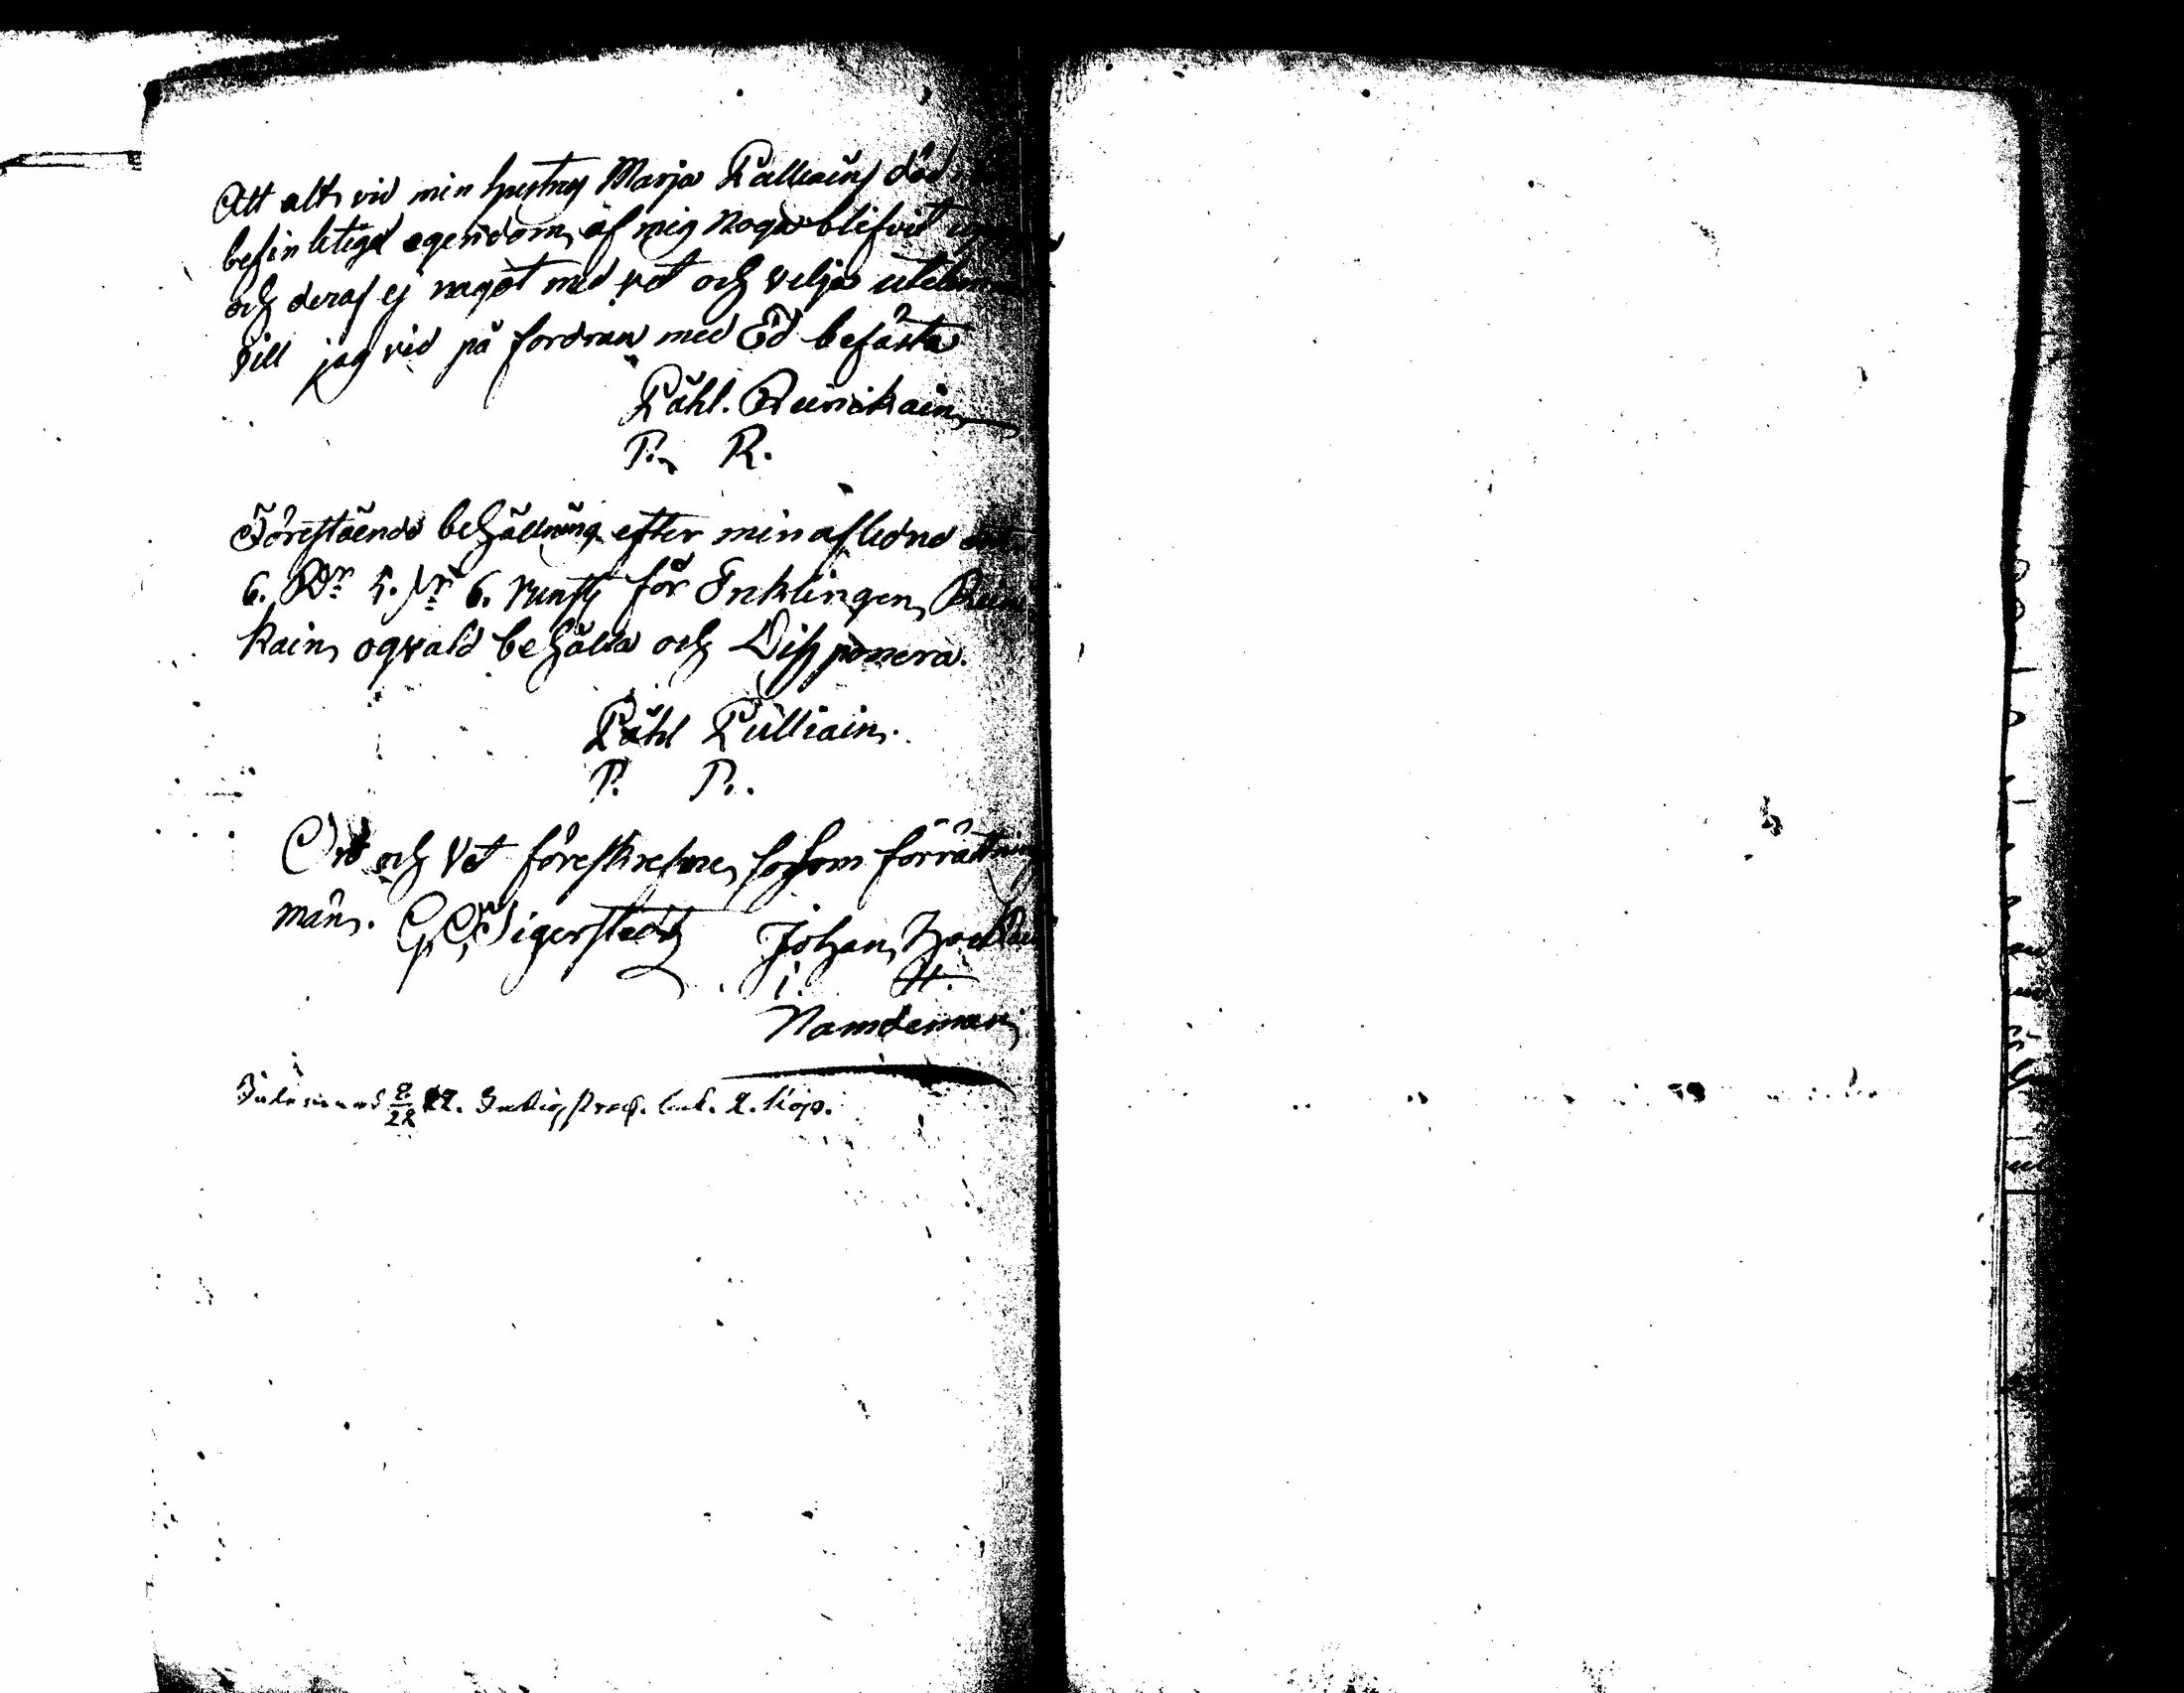 Att alt vid min hustrus Marja Pulliains död
befinteliga egendom af mig noga blifvit
och deraf ej något med vet och velja utelem
vill jag vid på fordran med Ed befästa
Påhl. Reinikain
P. R.
Föreståends behållning efter min aflidne
6. Rdr 5. sr 6. runst för Enklingen Rein
kain oqvald behålla och Dissponera.
Påhl Pulliain.
P. P.
Ort och Vet föreskrefne, såsom förrättnings
män. G. C. Sigerstedt Johan
i. H.
Namdeman